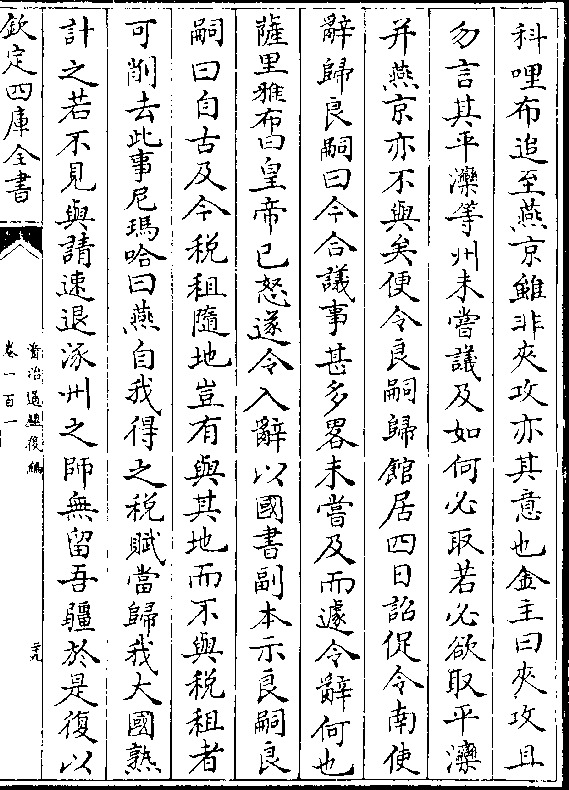 科哩布追至燕京雖非夾攻亦其意也金主曰夾攻且
勿言其平灤等州未嘗議及如何必取若必欲取平灤
并燕京亦不與矣便令良嗣歸館居四日詔促令南使
辭歸良嗣曰今合議事甚多畧未嘗及而遽令辭何也
薩里雅布曰皇帝已怒遂令入辭以國書副本示良嗣良
嗣曰自古及今税租隨地豈有與其地而不與税租者
可削去此事尼瑪哈曰燕自我得之税賦當歸我大國熟
計之若不見與請速退涿州之師無留吾疆於是復以
欽定四庫全書
資治通鑑後編
卷一百一
二十九